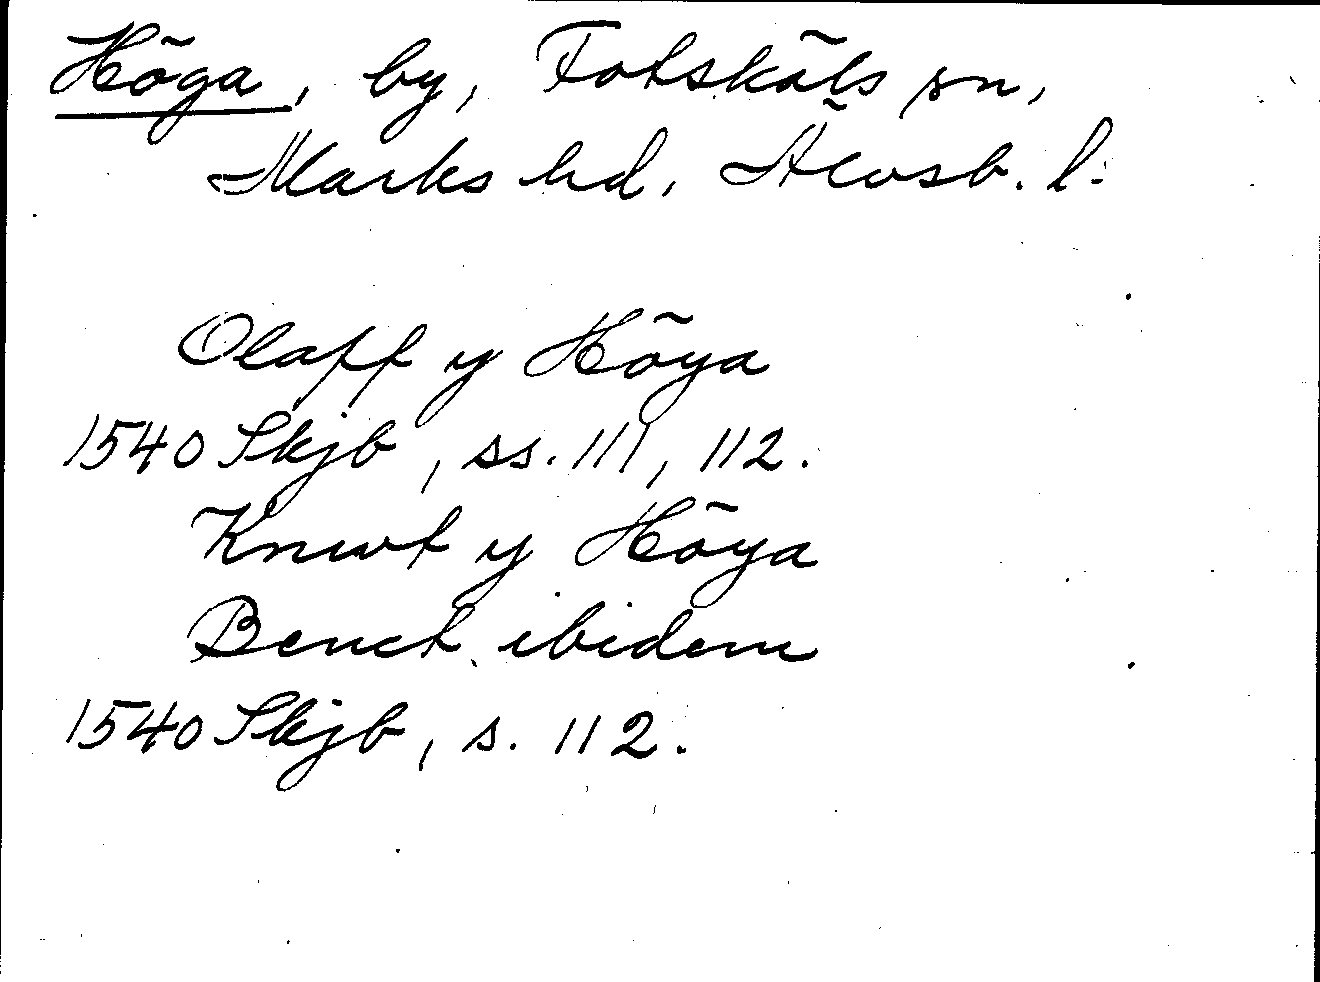 Höga, by, Fotskäls sn,
Marks hd, Älvsb. l:
Olaff y Höya
1540 Skjb, ss. 111, 112.
Knwt y Höya
Benct ibidem
1540 Skjb, s. 112.